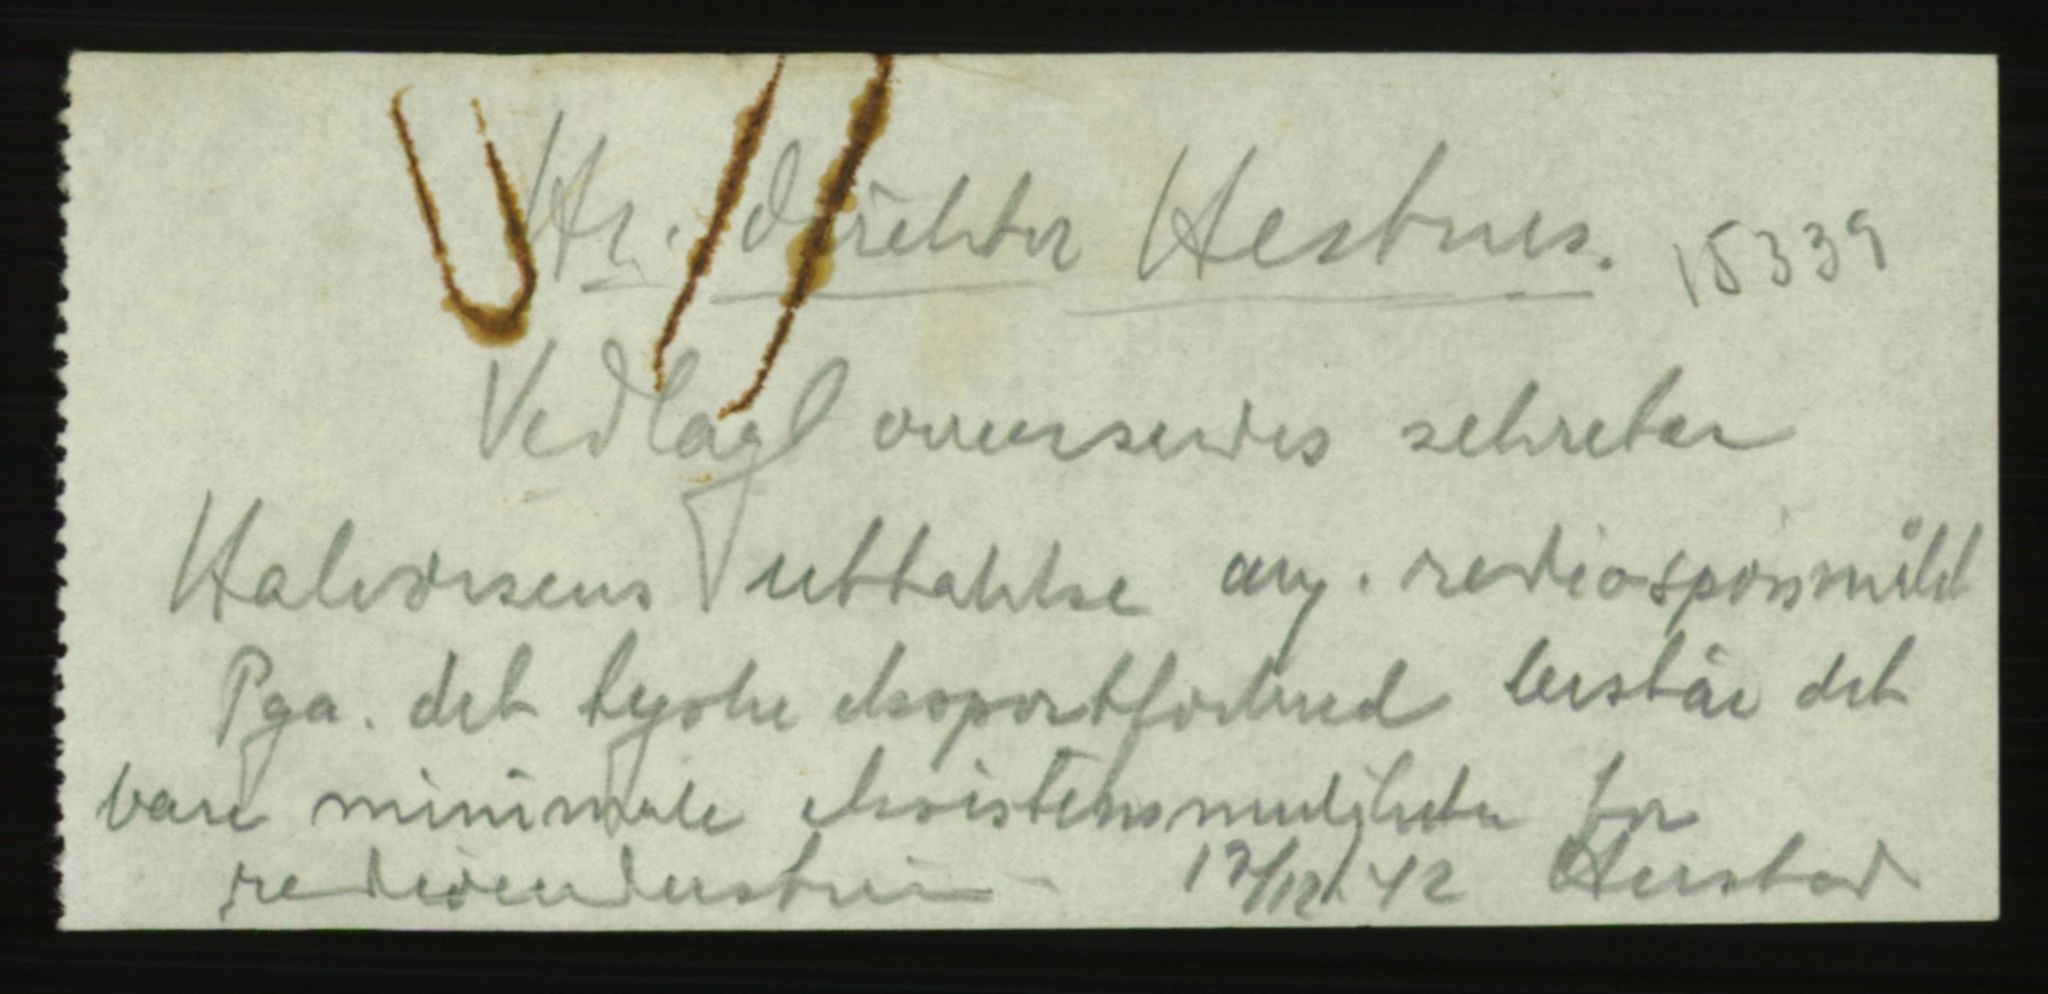 Hr. direktør Hestnes. 15339
Vedlagt oversendes sekretær
Halvorsens uttalelse ang. radiospørsmålet
Pga. det tyske eksportforbud består det
bare minimale eksistensmuligheter for
radioindustrien 12/12. 42 Herstad